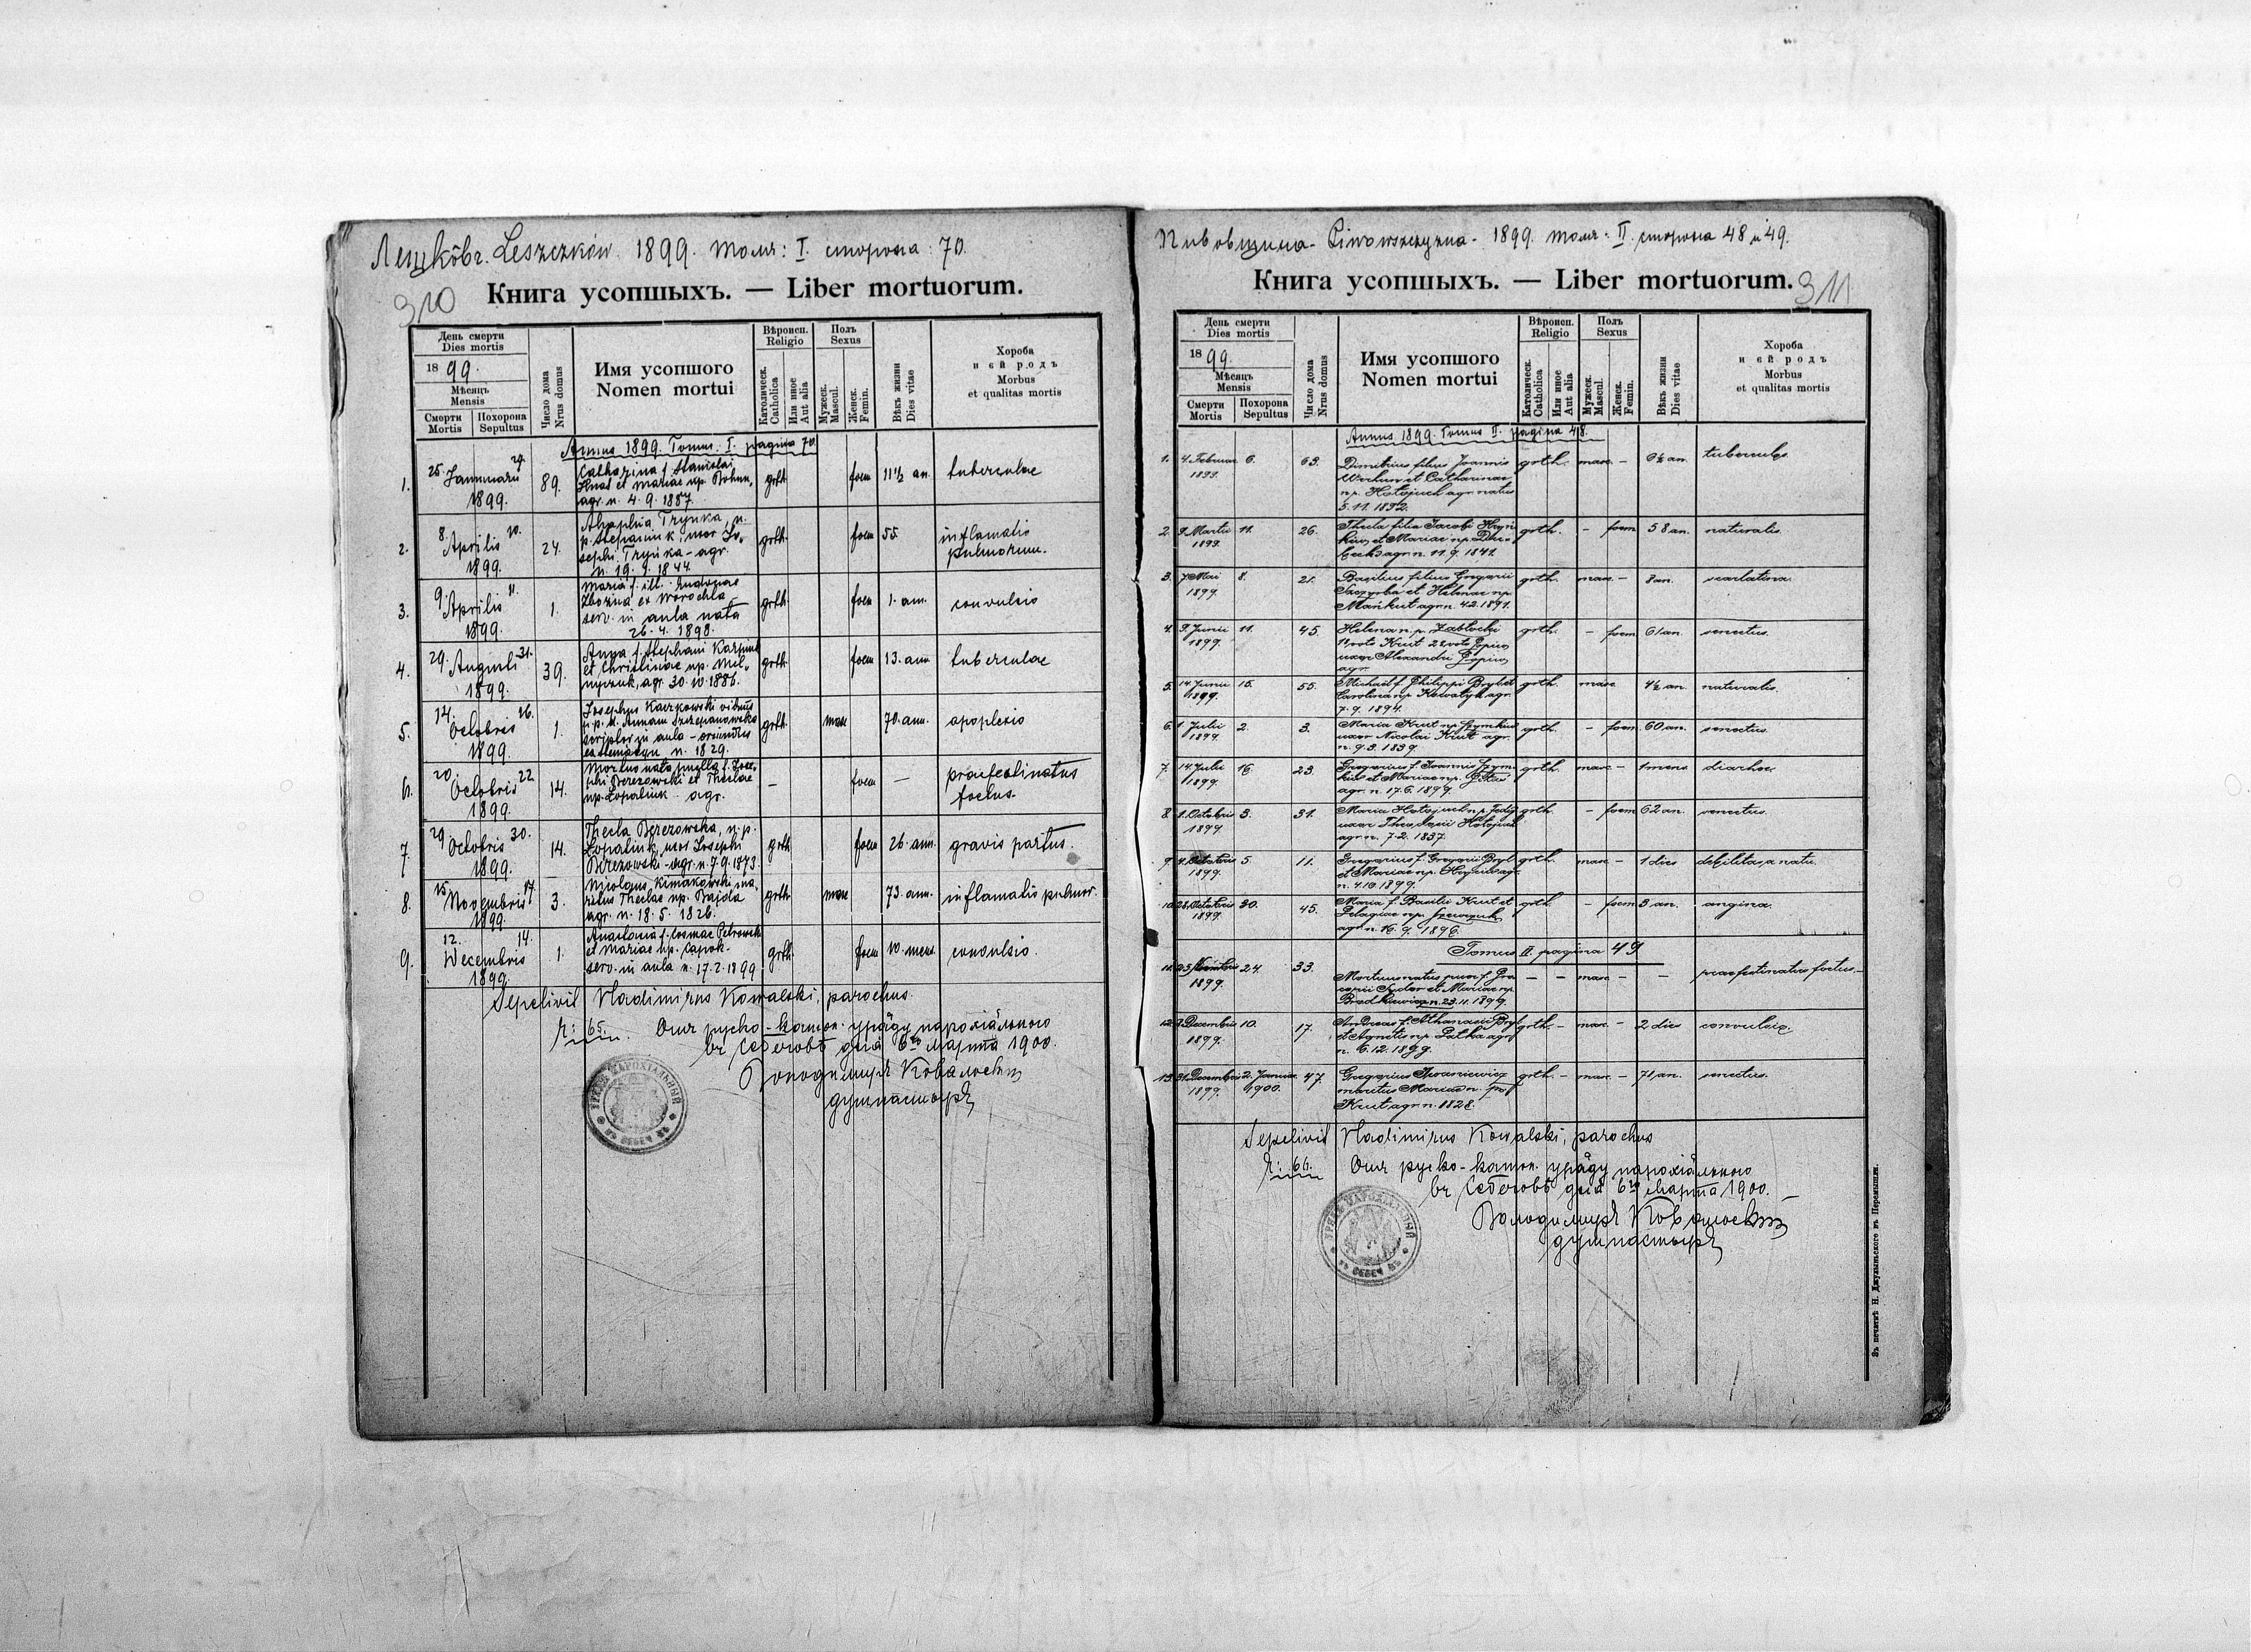 Лешкôвъ. Leszczków. 1899. томъ: I. сторона: 70.
310
Книга усопшыхъ. — Liber mortuorum.
День смерти
Dies mortis
1899.
Мѣсяцъ
Mensis
Смерти
Mortis
Похорона
Sepultus
Число дома
Nrus domus
Имя усопшого
Nomen mortui
Вѣроисп.
Religio
Католическ.
Catholica
Или иное
Aut alia
Полъ
Sexus
Мужеск.
Mascul.
Женск.
Femin.
Вѣкъ жизни
Dies vitae
Хороба
и єй родъ
Morbus
et qualitas mortis
Annus 1899. Tomus. I. pagina 70.
1. 25. Januarii 27. 1899. 89. Catharina f. Stanislai
Hnat et Mariae np. Bohun,
agr. n. 4. 9. 1887. grth. foem 11½ an. tuberculae
2. 8. Aprilis 10. 1899. 24. Trynka, n.
p. Stepaniuk, uxor Jo-
sephi Trynka - agr.
n. 19. 9. 1844 grth. foem 55. inflamatio
pulmorum.
3. 9. Aprilis 11. 1899. 1. Maria f. ill. Eudoxiae
ex Worochta
serv. in aula nata
26. 4. 1898. grth. foem 1. an. convulsio
4. 29. Augusti 31. 1899. 39. Anna f. Stephani
et Christinae np. Mel-
nyczuk, agr. 30. 10. 1886. grth. foem 13. ann tuberculae
5. 14. Octobris 16. 1899. 1. Josephus Kaczkowski viduus
p. m. Annam Szczepanowska
scriptor in aula - oriundus
n. 1829. grth. masc 70. ann. apoplexio
6. 20. Octobris 22. 1899. 14. Mortuo nata puella f. Jose-
phi Berezowski et Theclae
np. Łopatiuk. agr. — foem — praefestinatus
foetus.
7. 29. Octobris 30. 1899. 14. Thecla Berezowska, n. p.
Łopatiuk, uxor Josephi
Berezowski - agr. n. 7. 9. 1873. grth. foem 26. ann. gravis partus.
8. 15. Novembris 17. 1899. 3. Nicolaus Kimakowski ma-
ritus Theclae np. Bajda
agr. n. 18. 5. 1826. grth. masc 73. ann. inflamatio pulmor.
9. 12. Decembris 14. 1899. 1. Anastasia f. Cosmae Petrowski
et Mariae np. Capok-
serv. in aula n. 17. 2. 1899 grth. foem 10. mens. convulsio.
Sepelivit Vladimirus Kowalski, parochus.
Ч: 65. Отъ руско-катол. уряду парохіяльного
въ Себечовѣ дня 6го марта 1900.
Володимиръ Ковальскій
душпастырь
Пивовщина - Piwowszczyzna - 1899. томъ: II. сторона 48 и 49.
311
Книга усопшыхъ. — Liber mortuorum.
День смерти
Dies mortis
1899.
Мѣсяцъ
Mensis
Смерти
Mortis
Похорона
Sepultus
Число дома
Nrus domus
Имя усопшого
Nomen mortui
Вѣроисп.
Religio
Католическ.
Catholica
Или иное
Aut alia
Полъ
Sexus
Мужеск.
Mascul.
Женск.
Femin.
Вѣкъ жизни
Dies vitae
Хороба
и єй родъ
Morbus
et qualitas mortis
Annus 1899. Tomus II. pagina 48.
1. 4. Februar 1899. 6. 63. Dimitrius filius Joannis
et Catharinae
np. Hołojuch agr. natus
5. 11. 1892. grth. masc. - 6½ an. tubercules
2. 9. Martii 1899. 11. 26. Thecla filia Jacobi
et Mariae np.
agr. n. 11. 9. 1841. grth. - foem 58 an. naturalis.
3. 7. Mai 1899. 8. 21. Basilius filius Gregorii
Szczyrba et Helenae np.
Mańkut agr. n. 4. 2. 1891. grth. masc. - 8 an. scarlatina.
4. 9. Junii 1899. 11. 45. Helena n. p. Zabłocki
1º voto Krut 2º voto
uxor Alexandri
agr. grth. - foem 61 an. senectus.
5. 14. Junii 1899. 15. 55. Michael f. Philippi Bryl et
Carolina np. Kowalyk agr.
7. 9. 1894. grth. masc 4½ an. naturalis.
6. 1. Julii 1899. 2. 3. Maria Krut np. Szymkiw
uxor Nicolai Krut agr.
n. 9. 3. 1839. grth. - foem 60 an. senectus.
7. 14. Julii 1899. 16. 23. Gregorius f. Joannis Szym-
kiw et Mariae np.
agr. n. 17. 6. 1899. grth. masc. - 1 mens diarhoe
8. 1. Octobris 1899 3. 31. Maria Hołojuch np.
uxor Theodosii Hołojuch
agr. n. 7. 2. 1837. grth. - foem 62 an. senectus.
9. 4. Octobris 1899. 5. 11. Gregorius f. Gregorii Bryl
et Mariae np. agr.
n. 4. 10. 1899. grth. masc. - 1 dies debilitas, a natu.
10. 28. Octobris 1899. 30. 45. Maria f. Basilii Krut et
Pelagiae np.
agr. n. 16. 9. 1896. grth. - foem 3 an. angina.
Tomus II. pagina 49
11. 23. Novembris 1899. 24. 33. Mortuus natus puer f. Gre-
gorii Sydor et Mariae np.
n. 23. 11. 1899. — — masc. — — praefestinatus foetus. -
12. Decembris 1899. 10. 17. Andreas f. Athanasii Bryl
et Agnetis np. Pałka agr.
n. 6. 12. 1899. grth. - masc. - 2 dies convulsio,
13. 31. Decembris 1899. 2. Januar. 1900. 47. Gregorius Iwaniewicz
maritus Mariae n. p.
Krut agr. n. 1828. grth. - masc. - 71 an. senectus.
Sepelivit Vladimirus Kowalski, parochus
Ч: 66. Отъ руско-катол. уряду парохіяльного
въ Себечовѣ дня 6го марта 1900.
Володимиръ Ковальскій
душпастырь
Зъ печатнѣ Н. Джулыньского въ Перемышли.